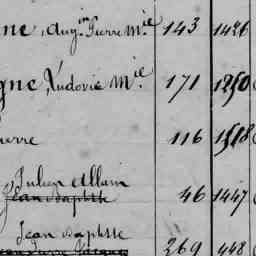 ne, Aug.in Pierre M.ie 143 1426
gne, Ludovic M.ie 171 1250
ierre 116 1518
Julien Allain
Jean Baptste 46 1447
Jean Baptste
269 448